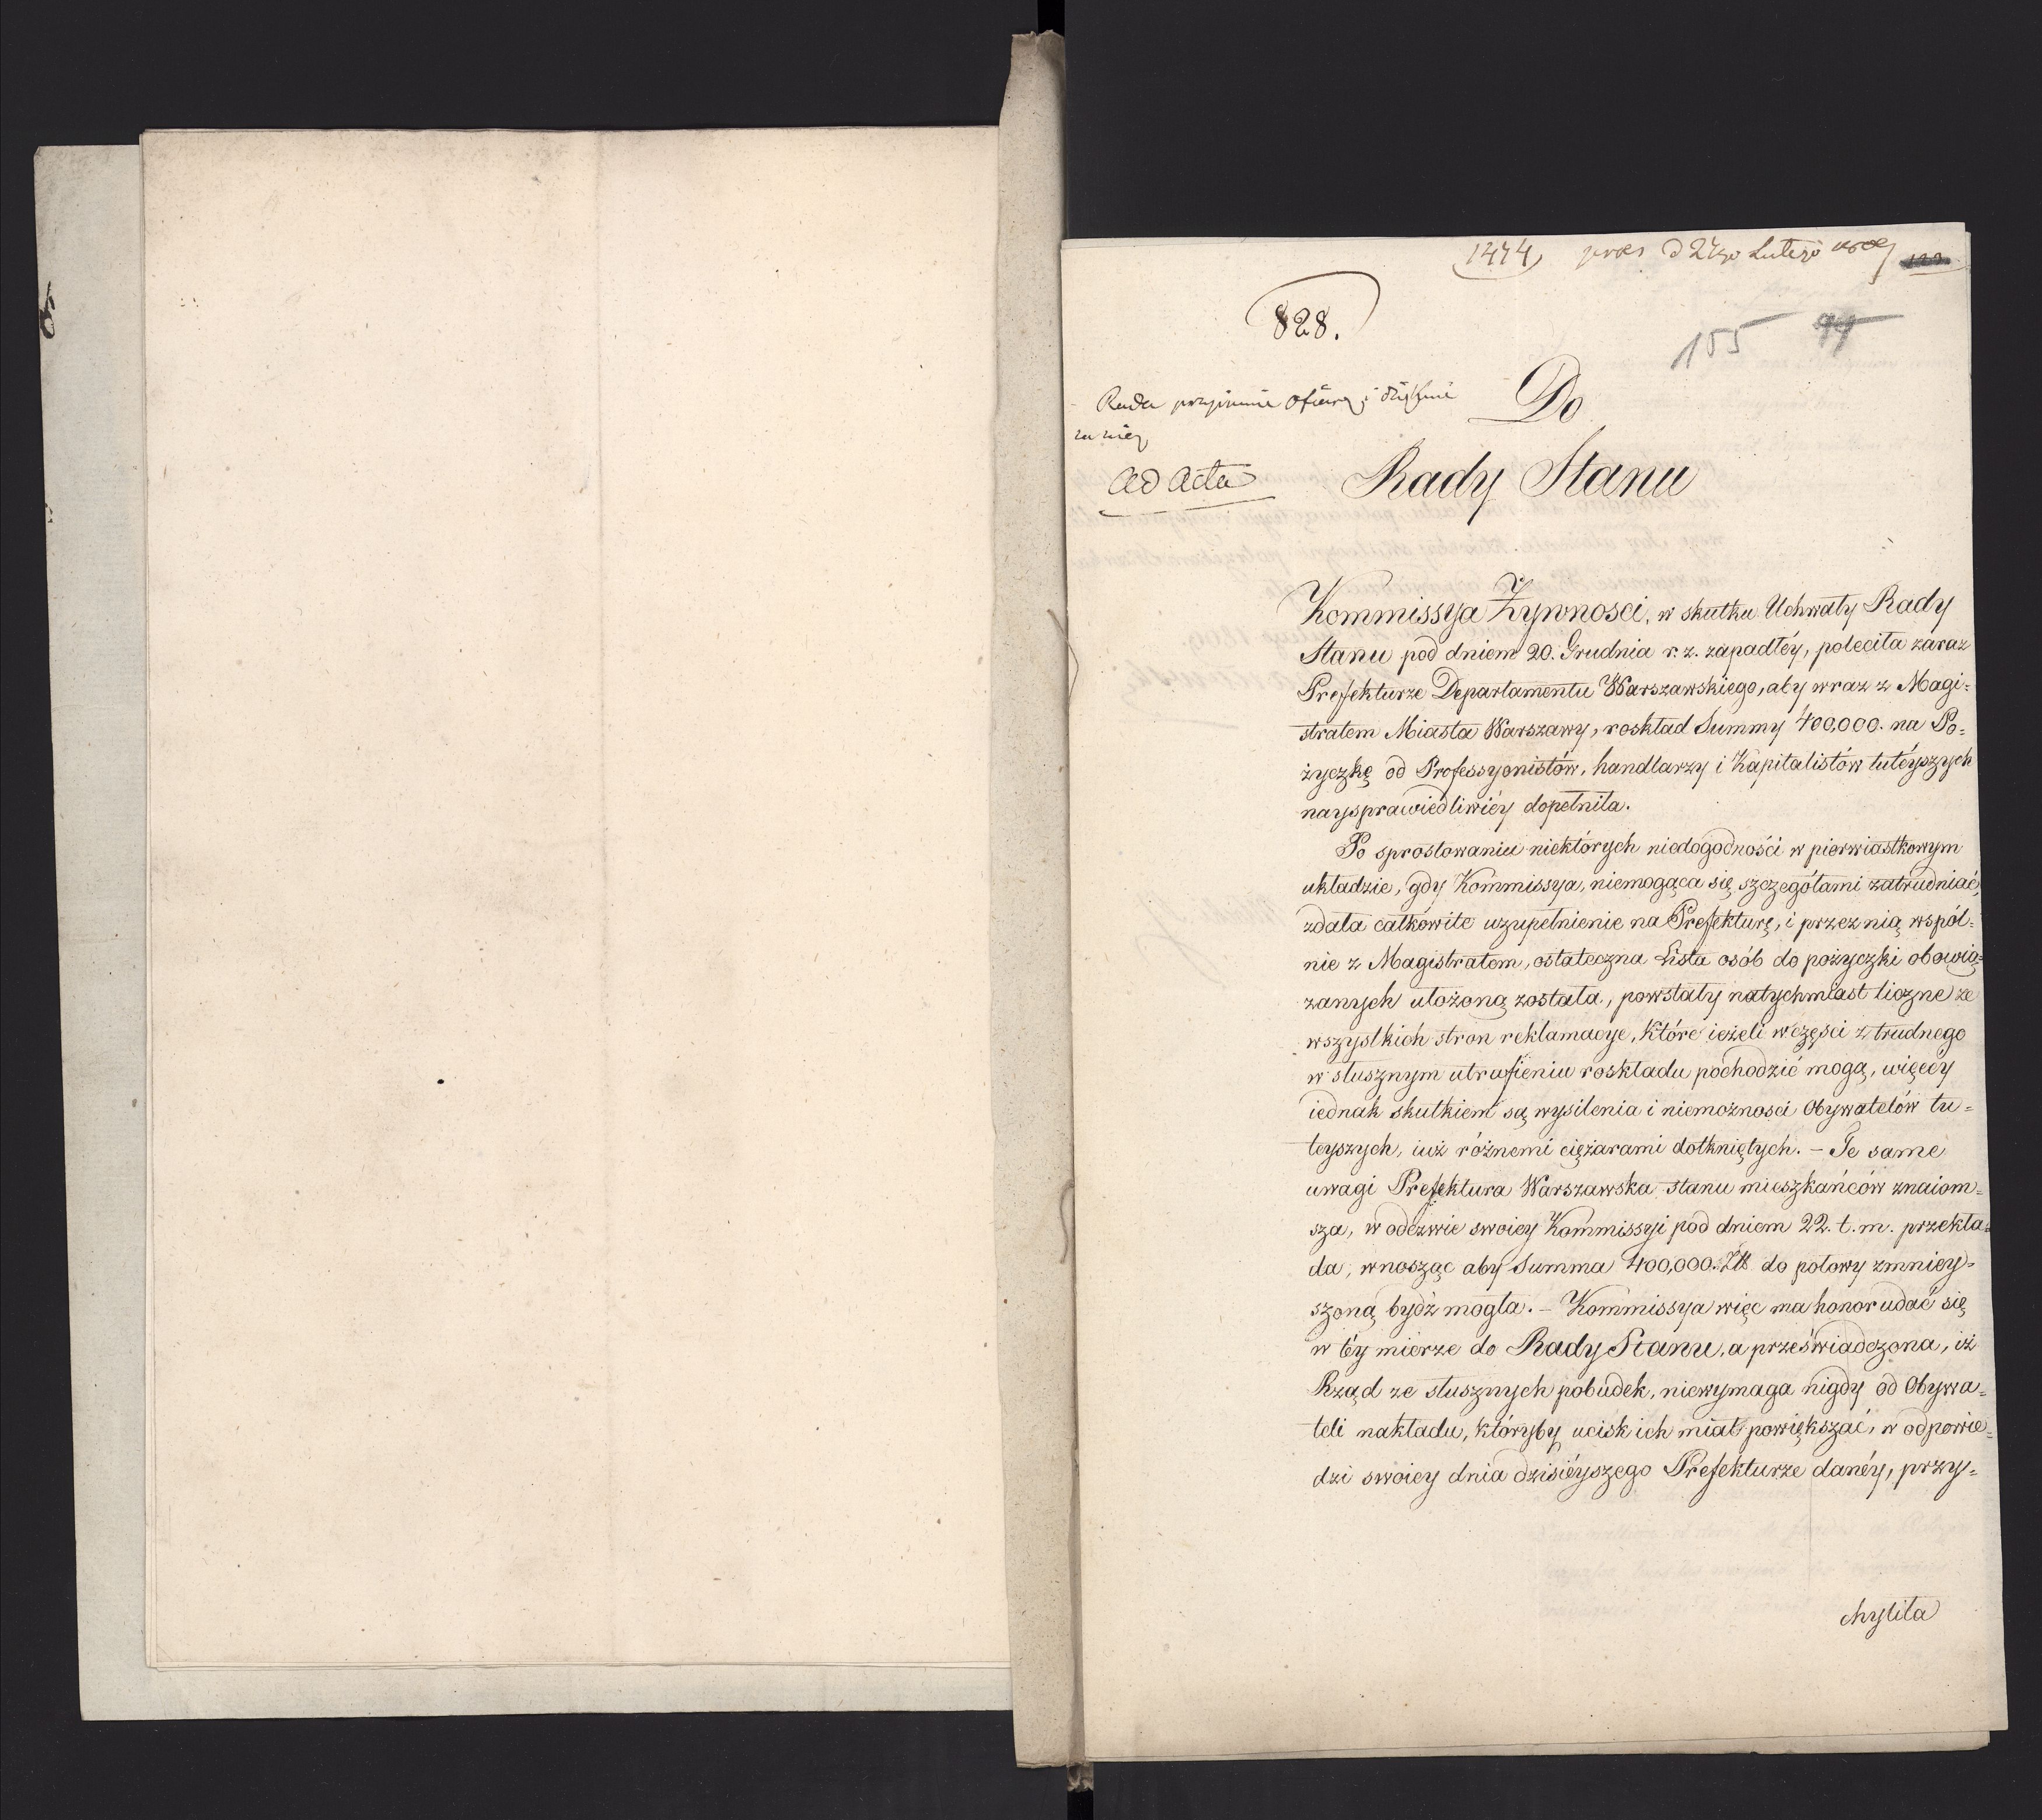 1474 praes d 27go Lutego 1809
828.
155 99
Rada przyimuie ofiarę i dziękuie
za nię
Ad Acta
Do
Rady Stanu
Kommissya Żywnosci, w skutku Uchwały Rady
Stanu pod dniem 20. Grudnia r. z. zapadłéy, poleciła zaraz
Prefekturze Departamentu Warszawskiego, aby wraz z Magi=
stratem Miasta Warszawy, roskład Summy 400,000. na Po=
życzkę od Professyonistów, handlarzy i Kapitalistów tutéyszych
naysprawiedliwiéy dopełniła.
Po sprostowaniu niektórych niedogodności w pierwiastkowym
układzie, gdy Kommissya, niemogąca się szczegółami zatrudniać,
zdała całkowite uzupełnienie na Prefekturę, i przez nią wspól=
nie z Magistratem, ostateczna Lista osób do pożyczki obowią=
zanych ułożoną została, powstały natychmiast liczne ze
wszystkich stron reklamacye, Które ieżeli w części z trudnego
w słusznym utrafieniu roskładu pochodzić mogą, więcéy
iednak skutkiem są wysilenia i niemożnosci Obywatelów tu=
teyszych, iuż różnemi ciężarami dotkniętych. – Te same
uwagi Prefektura Warszawska stanu mieszkańców znaiom=
sza, w odezwie swoiey Kommissyi pod dniem 22. t. m. przekła=
da, wnosząc aby Summa 400,000. Złł do połowy zmniey=
szoną bydź mogła. – Kommissya więc ma honor udać się
w téy mierze do Rady Stanu, a przeświadczona, iż
Rząd ze słusznych pobudek, niewymaga nigdy od Obywa=
teli nakładu, któryby ucisk ich miał powiększać, w odpowie=
dzi swoiey dnia dzisiéyszego Prefekturze danéy, przy=
chyliła